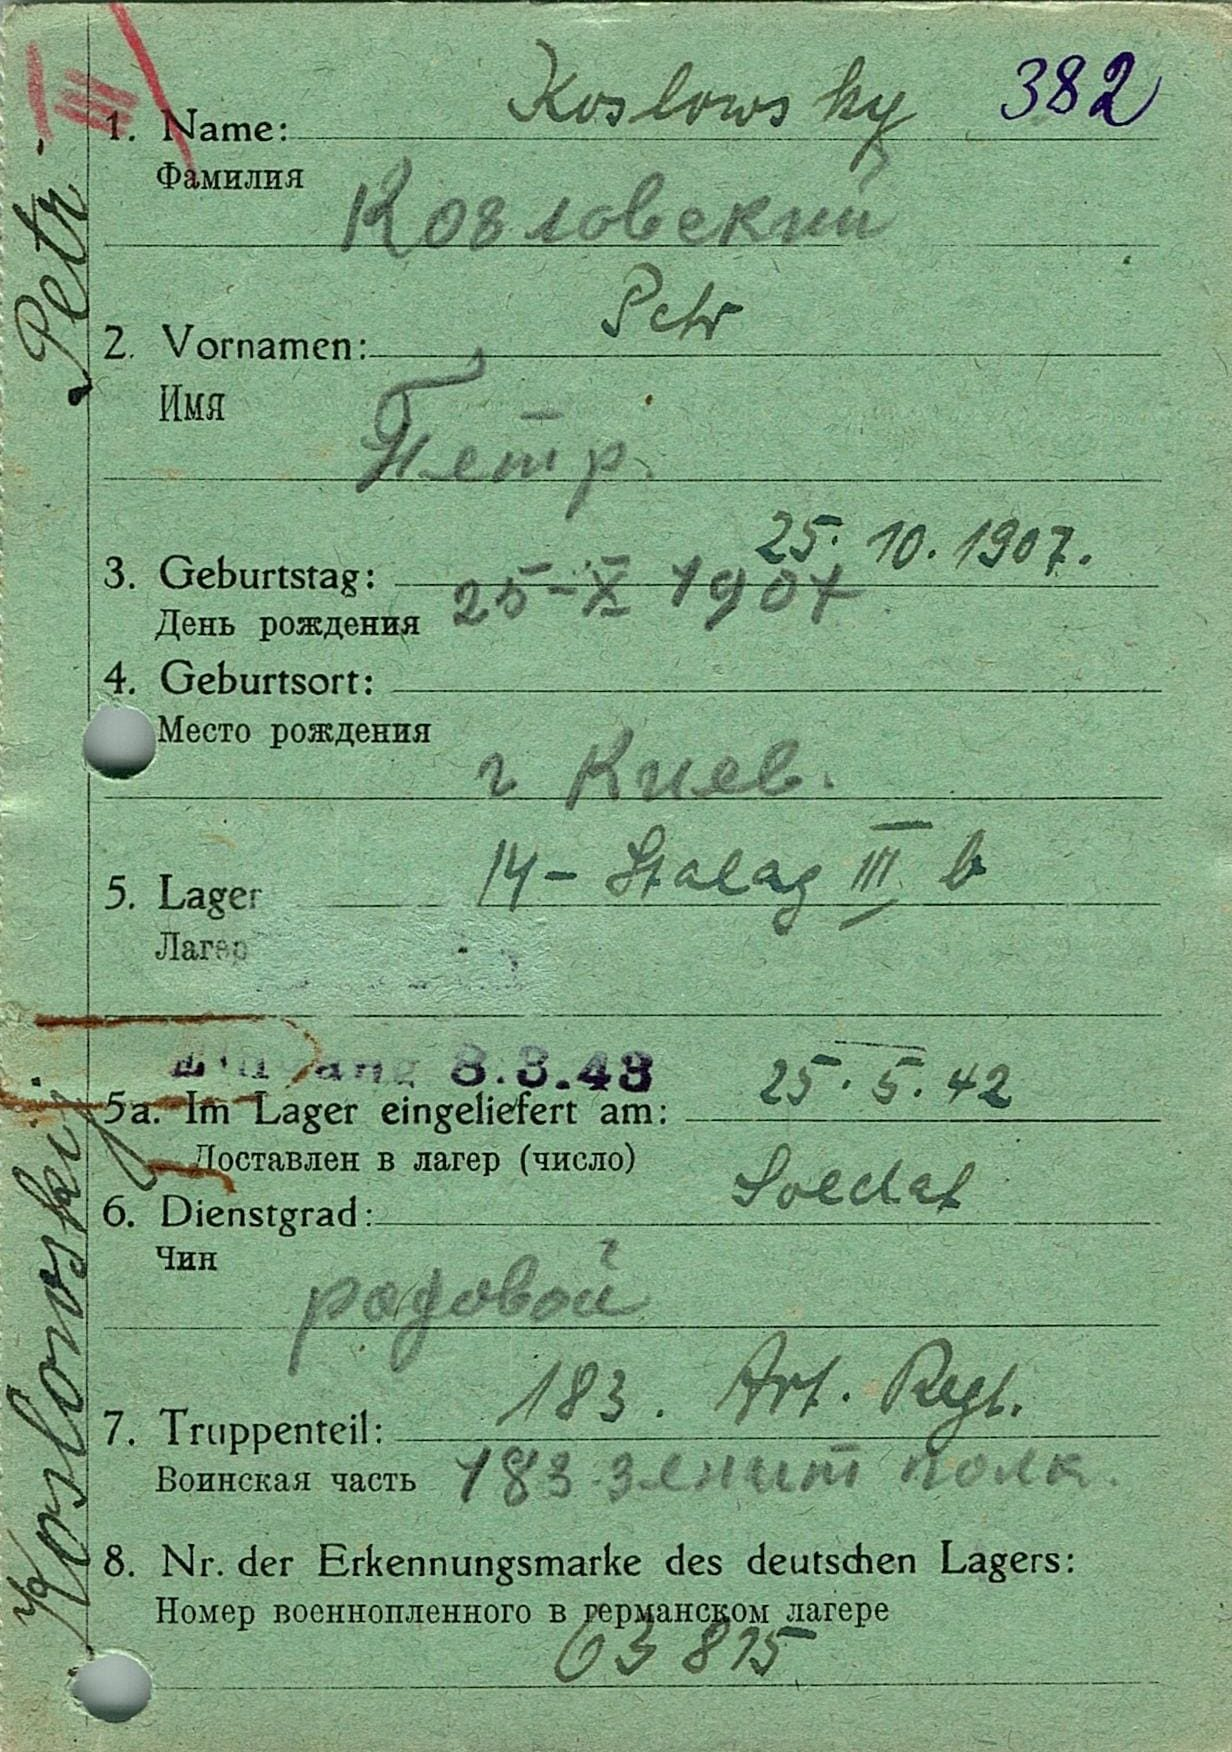 Koslowsky 382
1. Name:
Фамилия
Козловский
Petr
2. Vornamen:
Имя
Петр.
25. 10. 1907.
3. Geburtstag:
День рождения 25-X 1907
4. Geburtsort:
Место рождения
г Киев.
14- Stalag III b
5. Lager
Лагер
Eingang 8.3.43 25. 5. 42
5a. Im Lager eingeliefert am:
Доставлен в лагер (число)
Soldat
6. Dienstgrad:
Чин
рядовой
183. Art. Regt.
7. Truppenteil:
Воинская часть 183 зенит полк.
8. Nr. der Erkennungsmarke des deutschen Lagers:
Номер военнопленного в германском лагере
63 875
Koslowskij Petr